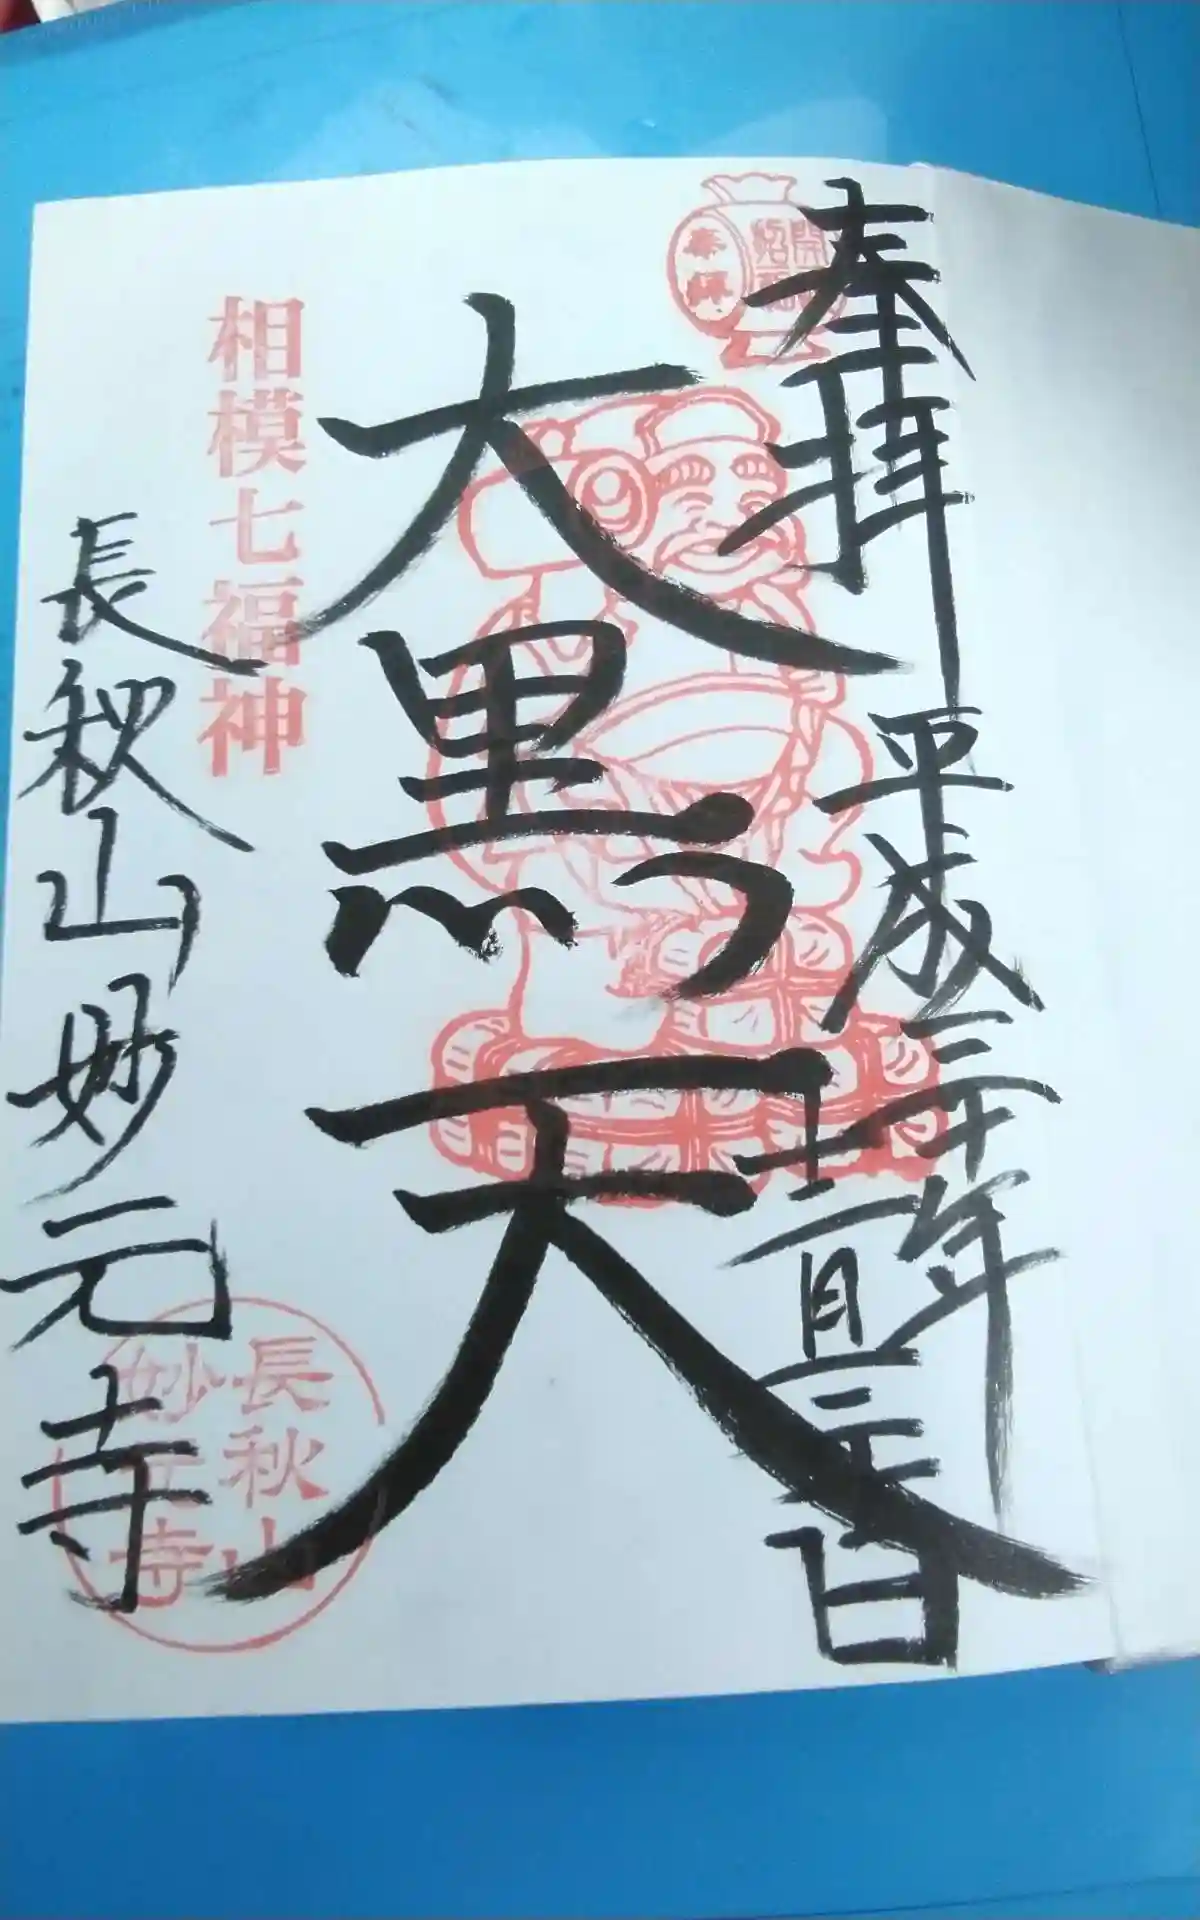 奉拝
平成三十年
十二月三十日
大黒天
相模七福神
長秋山妙元寺
長秋山
妙元寺